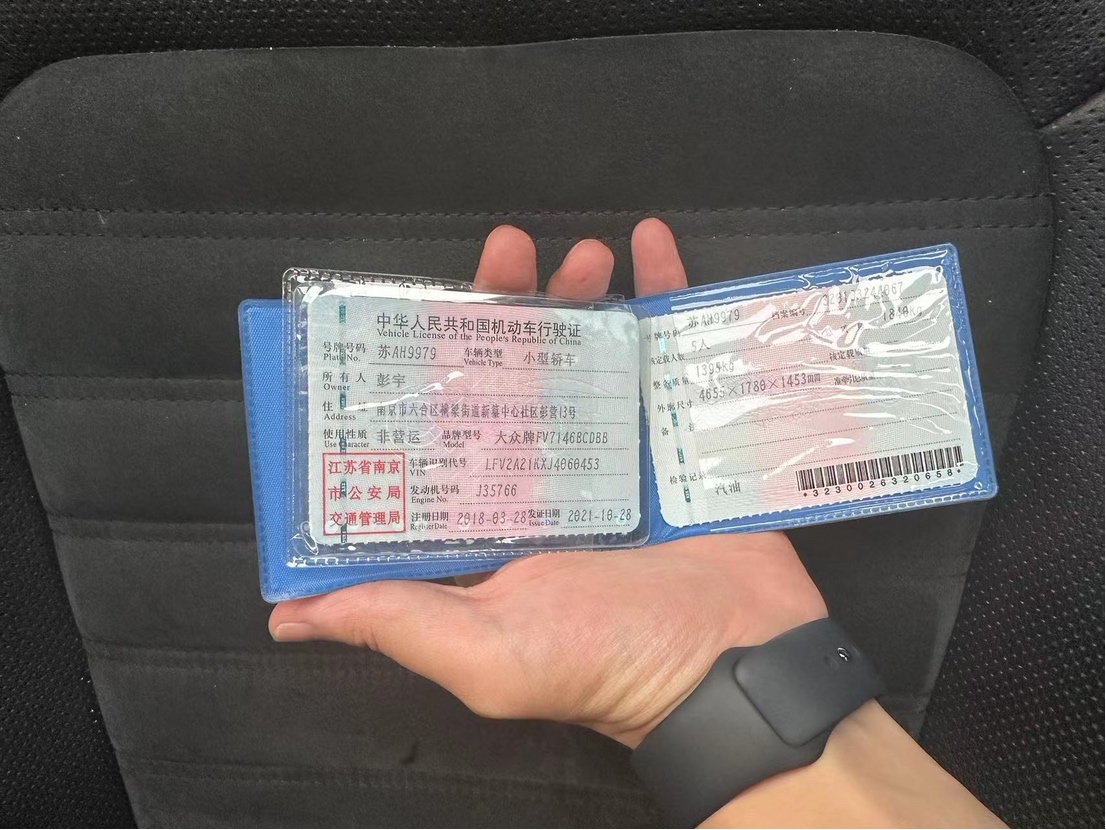 中华人民共和国机动车行驶证
Vehicle License of the People's Republic of China
号牌号码 苏AH9979 车辆类型 小型轿车
Plate No. Vehicle Type
所有人 彭宇
Owner
住 址 南京市六合区横梁街道新篁中心社区彭营13号
Address
使用性质 非营运 品牌型号 大众牌FV7146BCDBB
Use Character Model
江苏省南京
市公安局
交通管理局
车辆识别代号 LFV2A21KXJ4060453
VIN
发动机号码 J35766
Engine No.
注册日期 2018-03-28 发证日期 2021-10-28
Register Date Issue Date
号牌号码 苏AH9979 档案编号
核定载人数 5人 1840kg
整备质量 1395kg 核定载质量
外廓尺寸 4655×1780×1453mm
备
检验记录 汽油
*3230026320658*